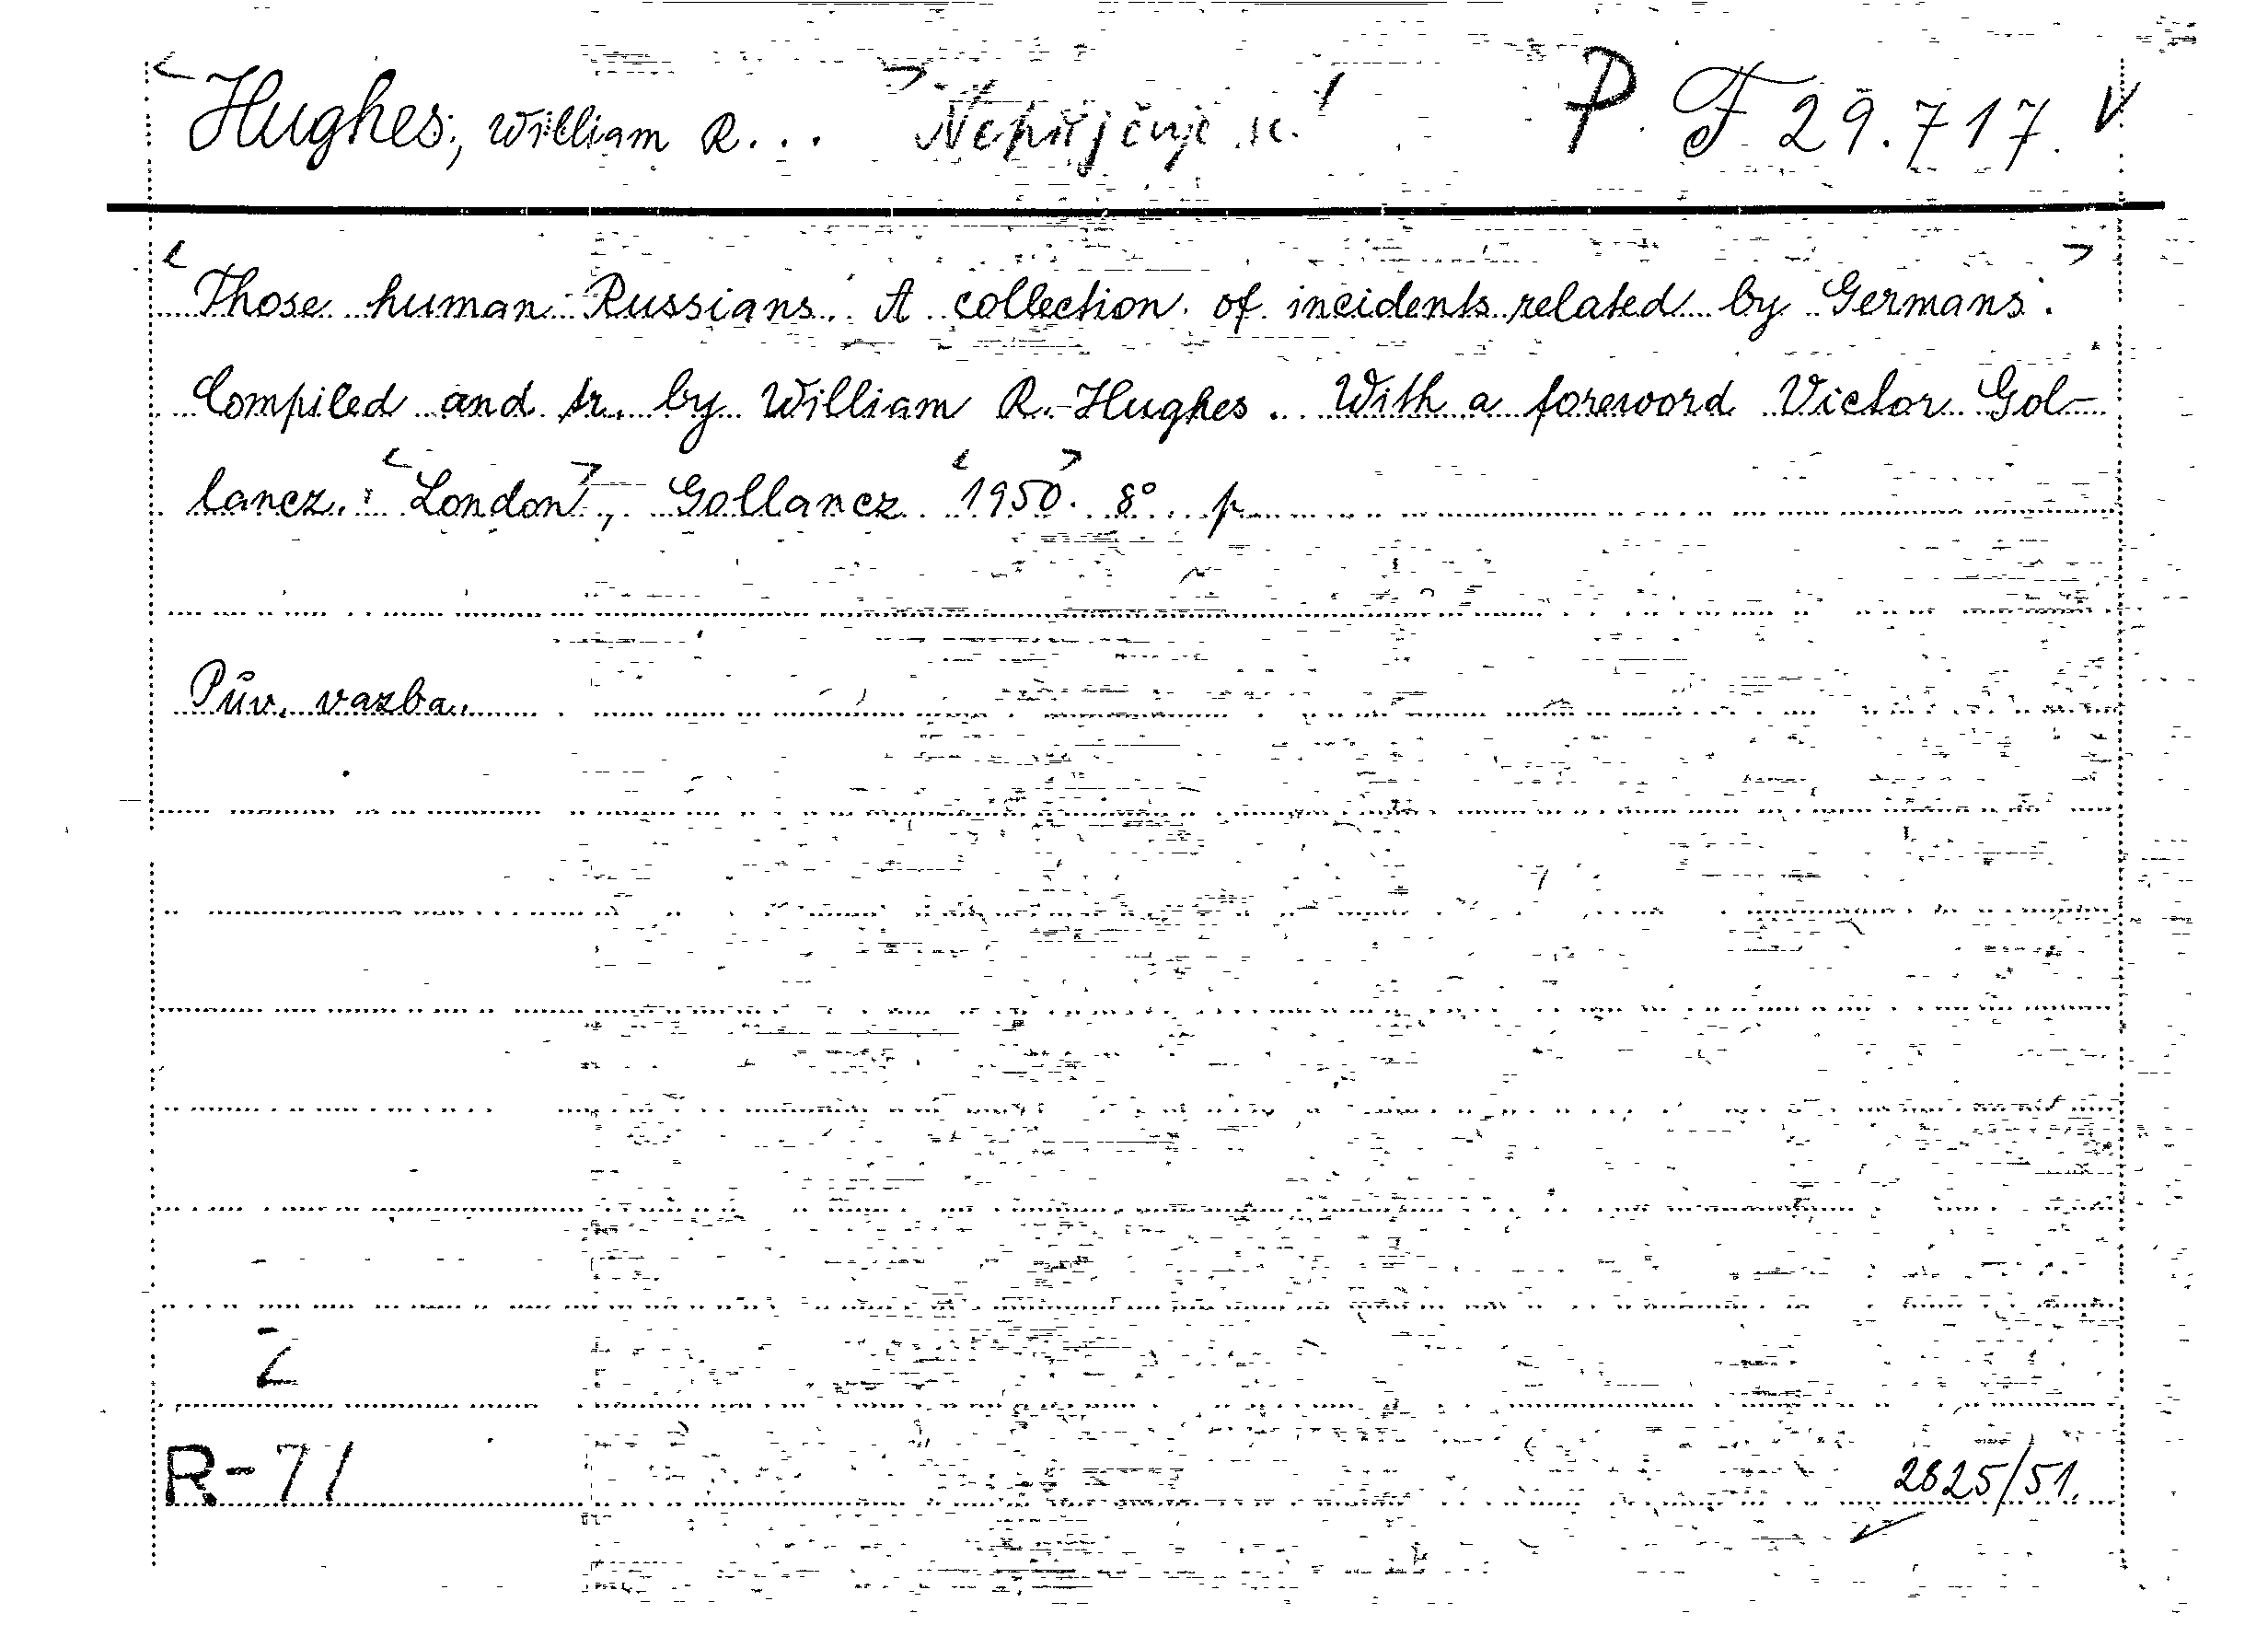 Hughes, William R... Nepůjčuje se! P F 29.717. V
Those human Russians. A collection of incidents related by Germans.
Compiled and tr. by William R. Hughes. With a foreword Victor Gol-
lancz. London, Gollancz 1950. 8° p
Pův. vazba.
Z
R-71
2825/51.